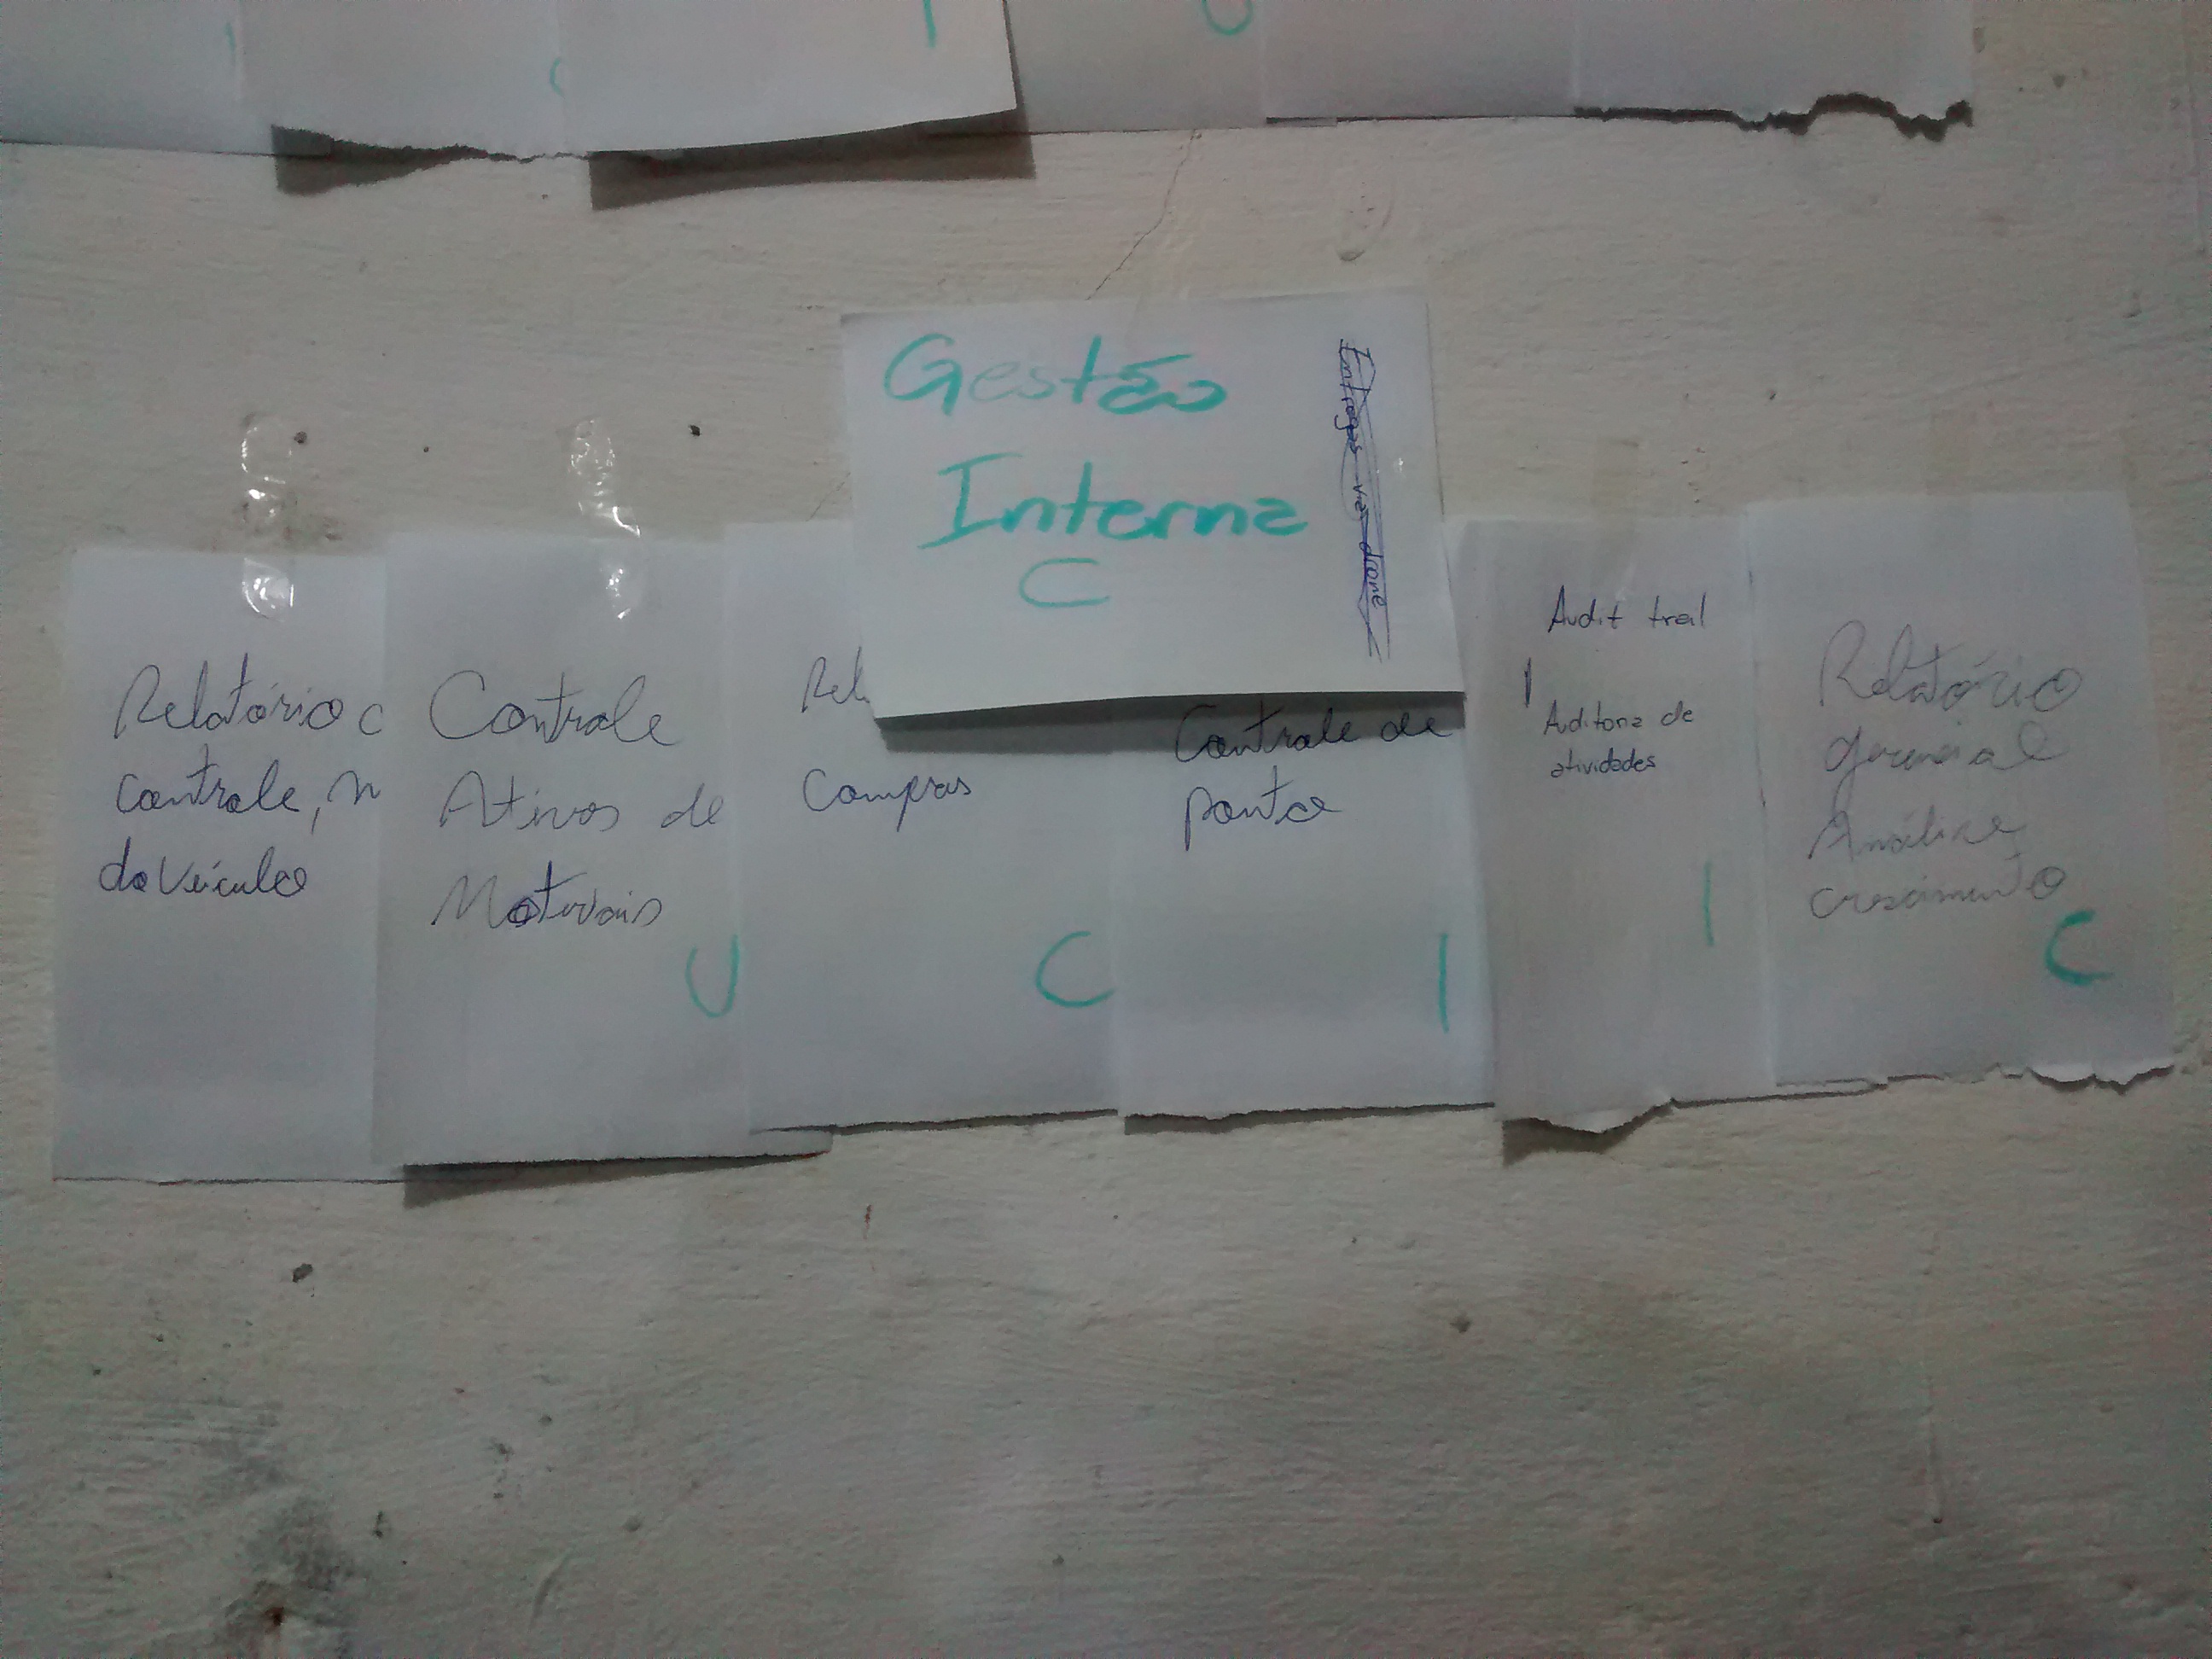 Gestão
Interna
C
Entregas via drone
Relatório
controle,
do Veículo
Controle
Ativos de
Materiais
U
Compras
C
Controle de
ponto
I
Audit trail
Auditoria de
atividades
I
Relatório
gerencial
Análise
crescimento
C